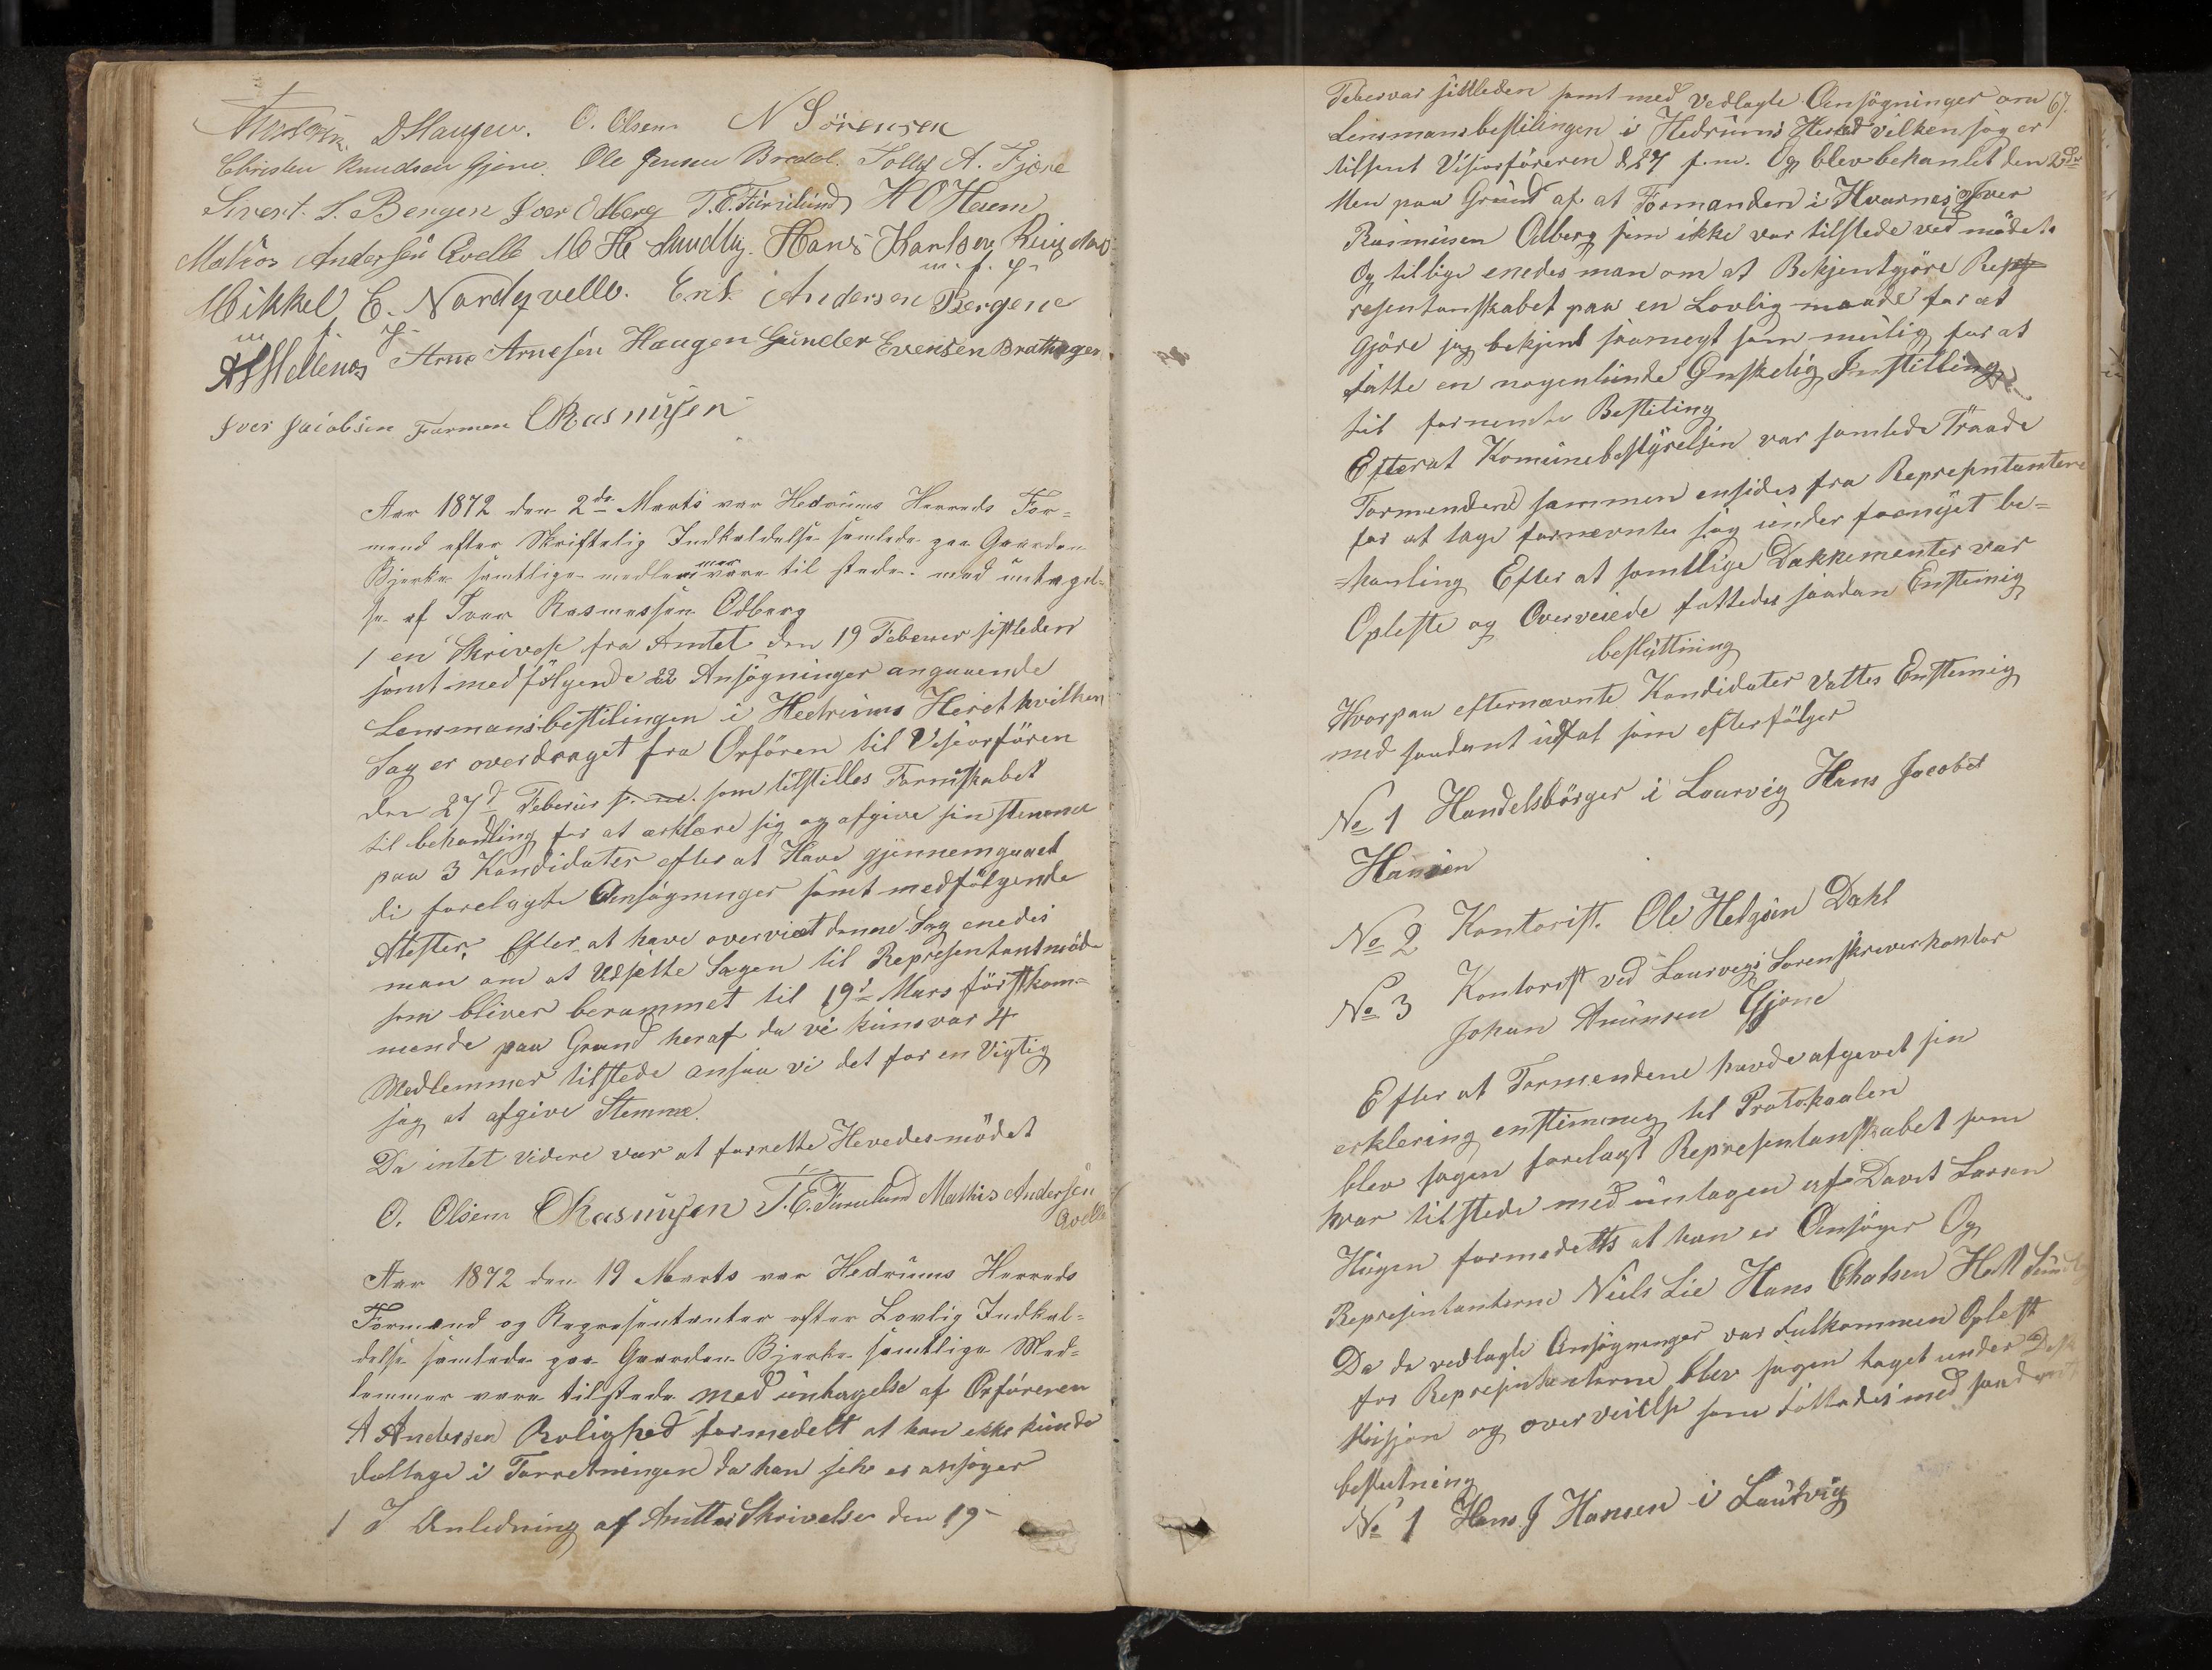 D Haugen. O. Olsen N Sörensen
Christen Knudsen Gjone. Ole Jensen Bredal. Tollef A. Fjøre
Sivert. S. Bergen Iver Odberg T. E. Furulund H O Haem
Matias Andersen Qvelle M H Sundby. Hans Karlsen Ringdal
m. f. P.
Mikkel E. Nordqvelle. Erik Andersen Bergene
m f. P.
Arne Arnesen Haugen Gunder Evensen Brathagen
Iver Jacobsen Farmen O Rasmusen
Aar 1872 den 2de Marts var Hedrums Herreds For=
mend efter Skriftelig Indkaldelse samlede paa Gaarden
Bjerke samtlige medlemmer vare til stede. med untagel-
se af Iver Rasmussen Odberg
1 en Skrivelse fra Amtet den 19 Feberuer sistleden
samt medfölgende 22 Ansögninger angaaende
Lensmansbestilingen i Hedrums Heret hvilken
Sag er overdraget fra Orfören til Viseorfören
den 27d Feberur f. m. som tilstilles Formskabet
til behandling for at ærklære sig og afgive sin stemme
paa 3 Kandidater efter at Have gjennemgaaet
di forelagte Ansögninger samt medfölgende
Atester. Efter at have overviet denne Sag enedes
man om at Udsette Sagen til Representantmöde
som bliver berammet til 19d Mars förstkom=
mende paa Grund heraf da vi kuns var 4
Medlemmer tilstede ansaa vi det for en Vigtig
sag at afgive Stemme.
Da intet videre var at forrette Hevedes mödet
O. Olsen O Rasmusen T. E. Furulund Mathis Andersen
Qvelle
Aar 1872 den 19 Marts var Hedrums Herreds
Formend og Representanter efter Lovlig Indkal=
delse samlede paa Gaarden Bjerke samtlige Med=
lemmer vare tilstede med untagelse af Orföreren
A Andersen Rolighed formedelt at han ikke kunde
deltage i Forretningen da han selv er ansöger
1 I Anledning af Amttes Skrivelse den 19-
67.
Feberuar sistleden samt med vedlagte Ansögninger om
Lensmansbestilingen i Hedrums Herred vilken sag er
tilsent Viseorföreren d 27 f. m. Og blev behanlet den 2de
Men paa Grund af at Formanden i Hvarnes Iver
Rasmusen Odberg som ikke var tilstede ved mödet.
Og tillige enedes man om at Bekjentgjöre Rep
resentanskabet paa en Lovlig maade for at
Gjöre sag bekjent saameget som mulig for at
fatte en nogenlunde Önskelig Instilling
til fornemte Bestiling
Efter at Komunebestyrelsen var samlede Traade
Formendene sammen ensides fra Represntantene
for at tage fornævnte sag under fornyet be=
=hanling Efter at samtlige Dokkementer var
Opleste og Overveiede fattedes saadan Enstemig
beslutning
Hvorpaa efternævnte Kandidater Vattes Enstemig
med saadant udfal som efterfölger
No 1 Handelsbörger i Laurvig Hans Jacobet
Hansen
No 2 Kontorist. Ole Helgsen Dahl
No 3 Kontorist ved Laurvegs Sorenskriverkontor
Johan Amunsen Gjone
Efter at Formendene havde afgevet sin
erklering enstimmeg til Protokaalen
blev sagen forelagt Representanskabet som
hvar tilstede med untagen af Davet Larsen
Hagen formedetts at han er Ansöger Og
Represintanterne Niels Lie Hans Olsen H M Sundby
Da de vedlagte Ansögninger var Fulkommen Oplest
for Represintanterne blev sagen taget under Disk
kusjon og overveielse som fattedes med saadant
beslutning
No 1 Hans J Hansen i Laurvig